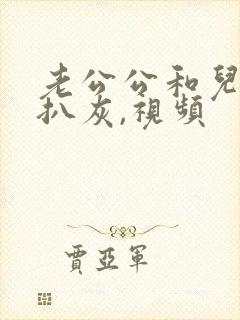 老公公和兒
扒灰,視頻
賈亞軍